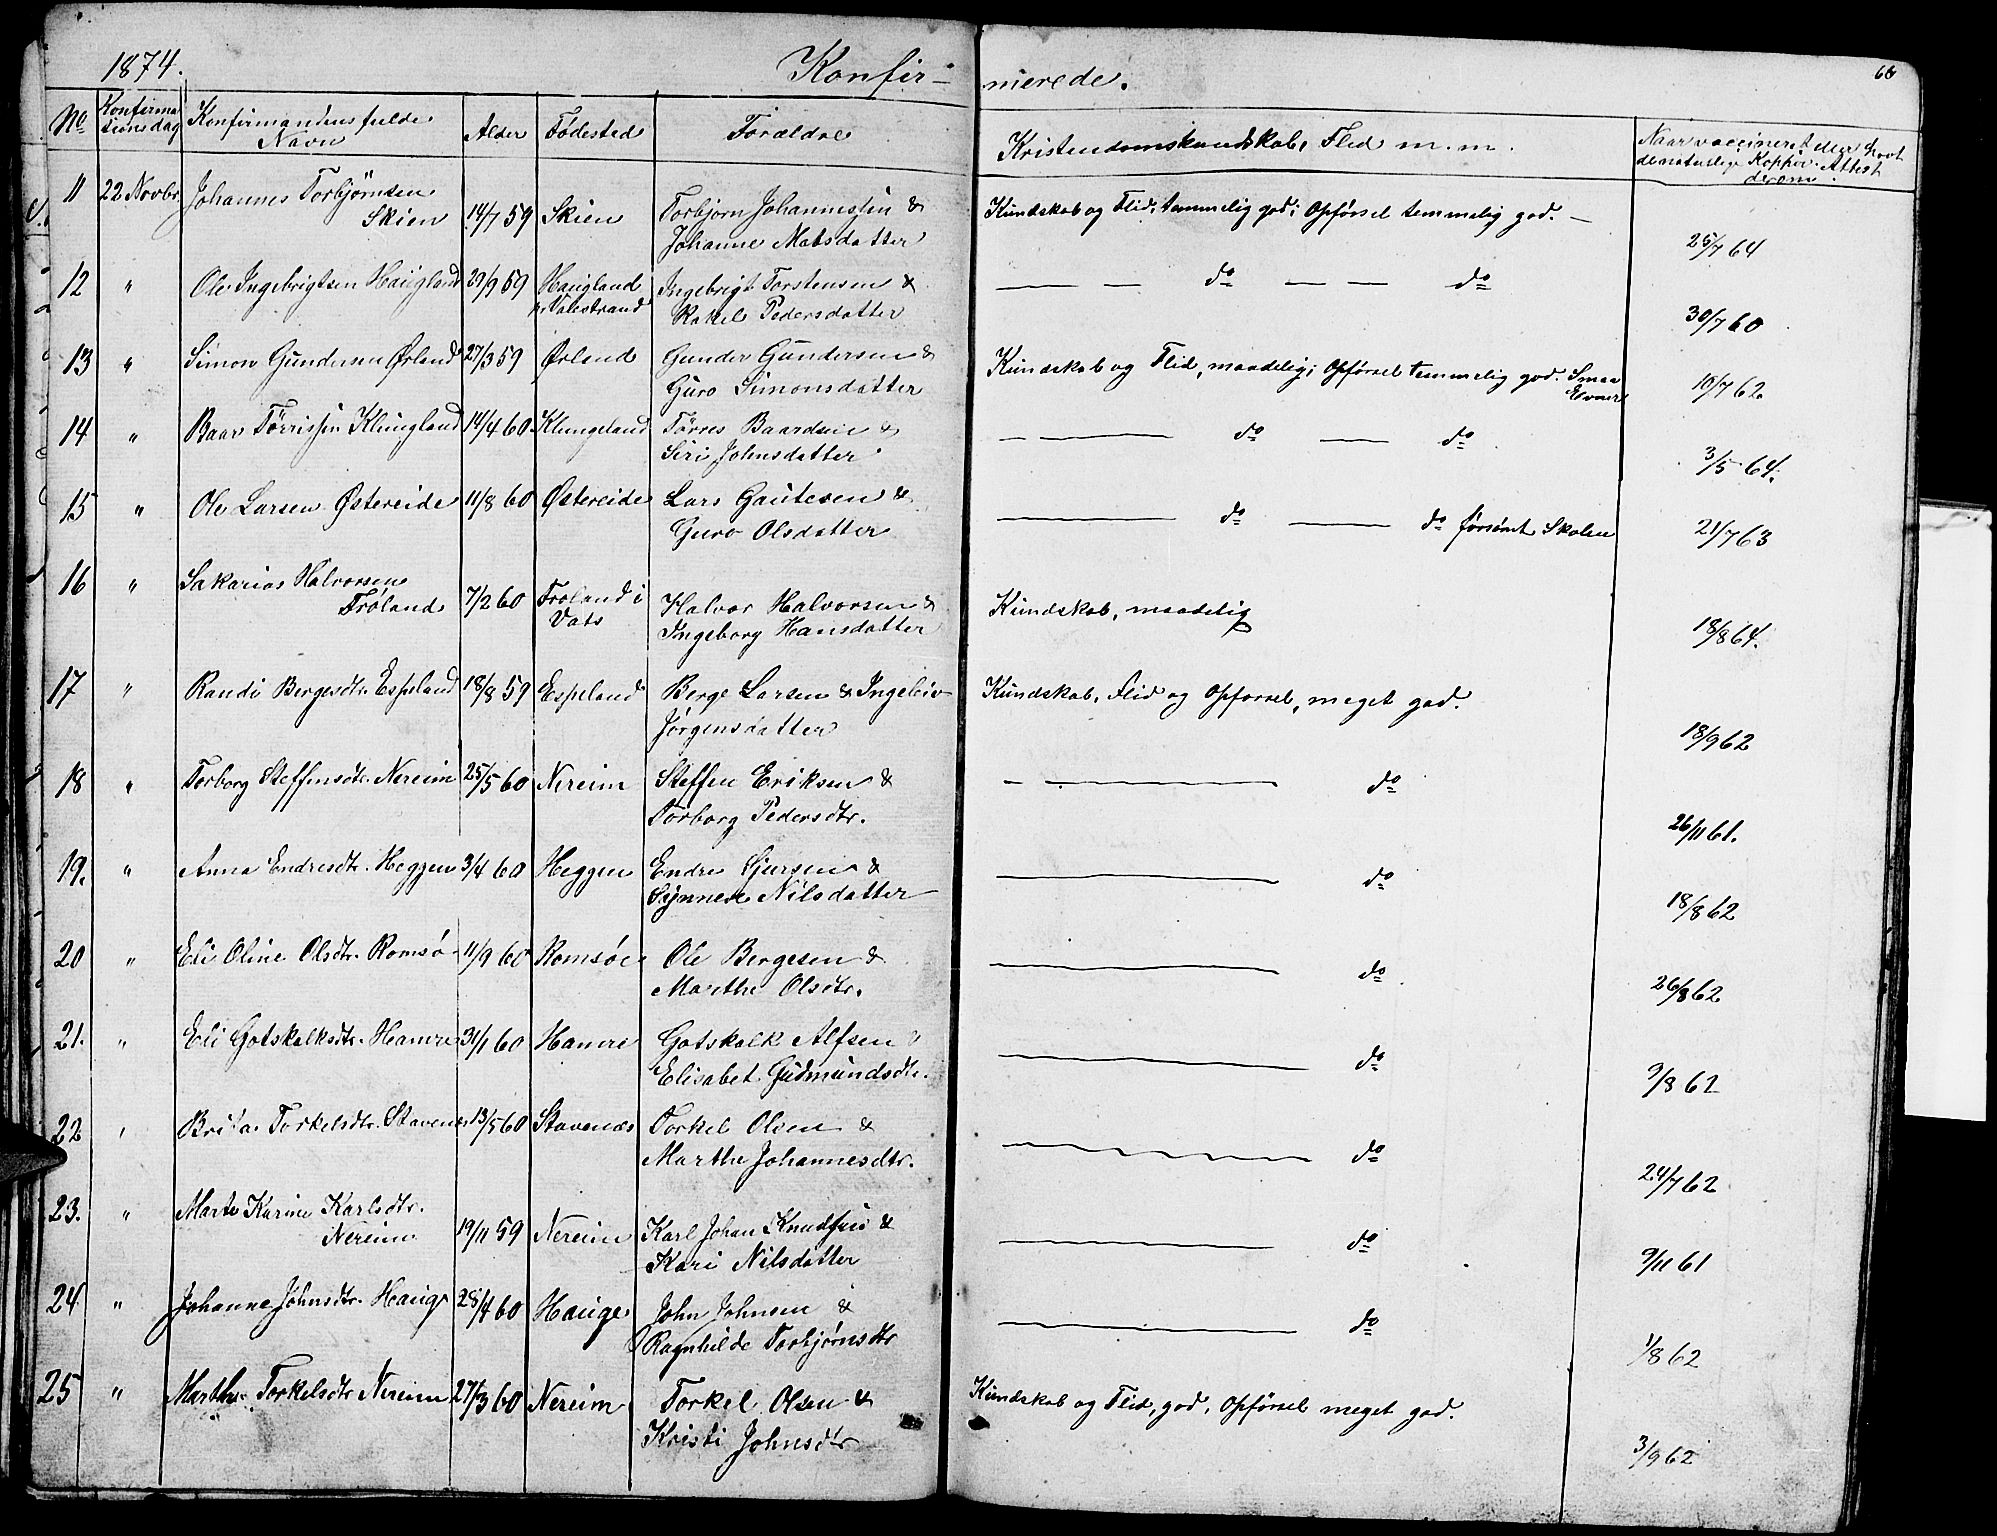 1874.
Konfir-
merede.
66
No
Konfirma
tionsdag
Konfirmandens fulde
Navn
Alder
Fødested
Forældre
Kristendomskundskab, Flid m. m.
Naar vaccineret eller havt
de naturlige Kopper. Attest
derom.
11 22 Novbr. Johannes Torbjörnsen
Skien 14/7 59 Skien Torbjörn Johannessen &
Johanne Matsdatter
Kundskab og Flid, temmelig god; Opførsel temmelig god. —
25/7 64
12 " Ole Ingebrigtsen Haugland 29/9 59 Haugland Ingebrigt Torstensen &
Valestrand Rakel Pedersdatter
— — do — — do
30/7 60
13 " Simon Gundersen Ørland 27/3 59 Ørland Gunder Gundersen &
Guro Simonsdatter
Kundskab og Flid, maadelig; Opførsel temmelig god. Smaa
Evner
10/7 62.
14 " Baar Törrissen Klungland 14/4 60 Klungeland Törres Baardsen &
Siri Johnsdatter
— — do — do
3/5 64.
15 " Ole Larsen Østereide 11/8 60 Østereide Lars Gautesen &
Guro Olsdatter
— do — do forsömt Skolen
21/7 63
16 " Sakarias Halvorsen
Frøland 7/2 60 Froland i
Vats
Halvor Halvorsen &
Ingeborg Hansdatter
Kundskab, maadelig
18/8 64.
17 " Randi Bergesdtr. Espeland 18/8 59 Espeland Berge Larsen & Ingeleiv
Jörgensdatter
Kundskab, Flid og Opførsel, meget god.
18/9 62
18 " Torborg Steffensdtr. Nereim 25/5 60 Nereim Steffen Eriksen &
Torborg Pedersdtr.
— — do
26/11 61.
19. " Anna Endresdtr. Heggen 3/4 60 Heggen Endre Sjursen &
Synneve Nilsdatter
— do
18/8 62
20 " Eli Oline Olsdtr. Romsø 11/9 60 Romsøe Ole Bergesen &
Marthe Olsdtr.
— do
26/8 62
21. " Eli Gotskalksdtr. Hamre 31/1 60 Hamre Gotskalk Alfsen &
Elisabet Gudmundsdtr.
— do
9/8 62
22 " Brita Torkelsdtr. Stavenes 13/5 60 Stavenæs Torkel Olsen &
Marthe Johannesdtr.
— do
24/7 62
23. " Marte Karine Karlsdtr.
Nereim 19/11 59 Nereim Karl Johan Knudsen &
Kari Nilsdatter
— do
9/11 61
24 " Johanne Johnsdtr. Hauge 28/4 60 Hauge John Johnsen &
Ragnhilde Torbjørnsdtr
— do
1/8 62
25 " Marthe Torkelsdtr Nereim 27/3 60 Nereim Torkel Olsen &
Kristi Johnsdtr
Kundskab og Flid, god, Opførsel meget god.
3/9 62